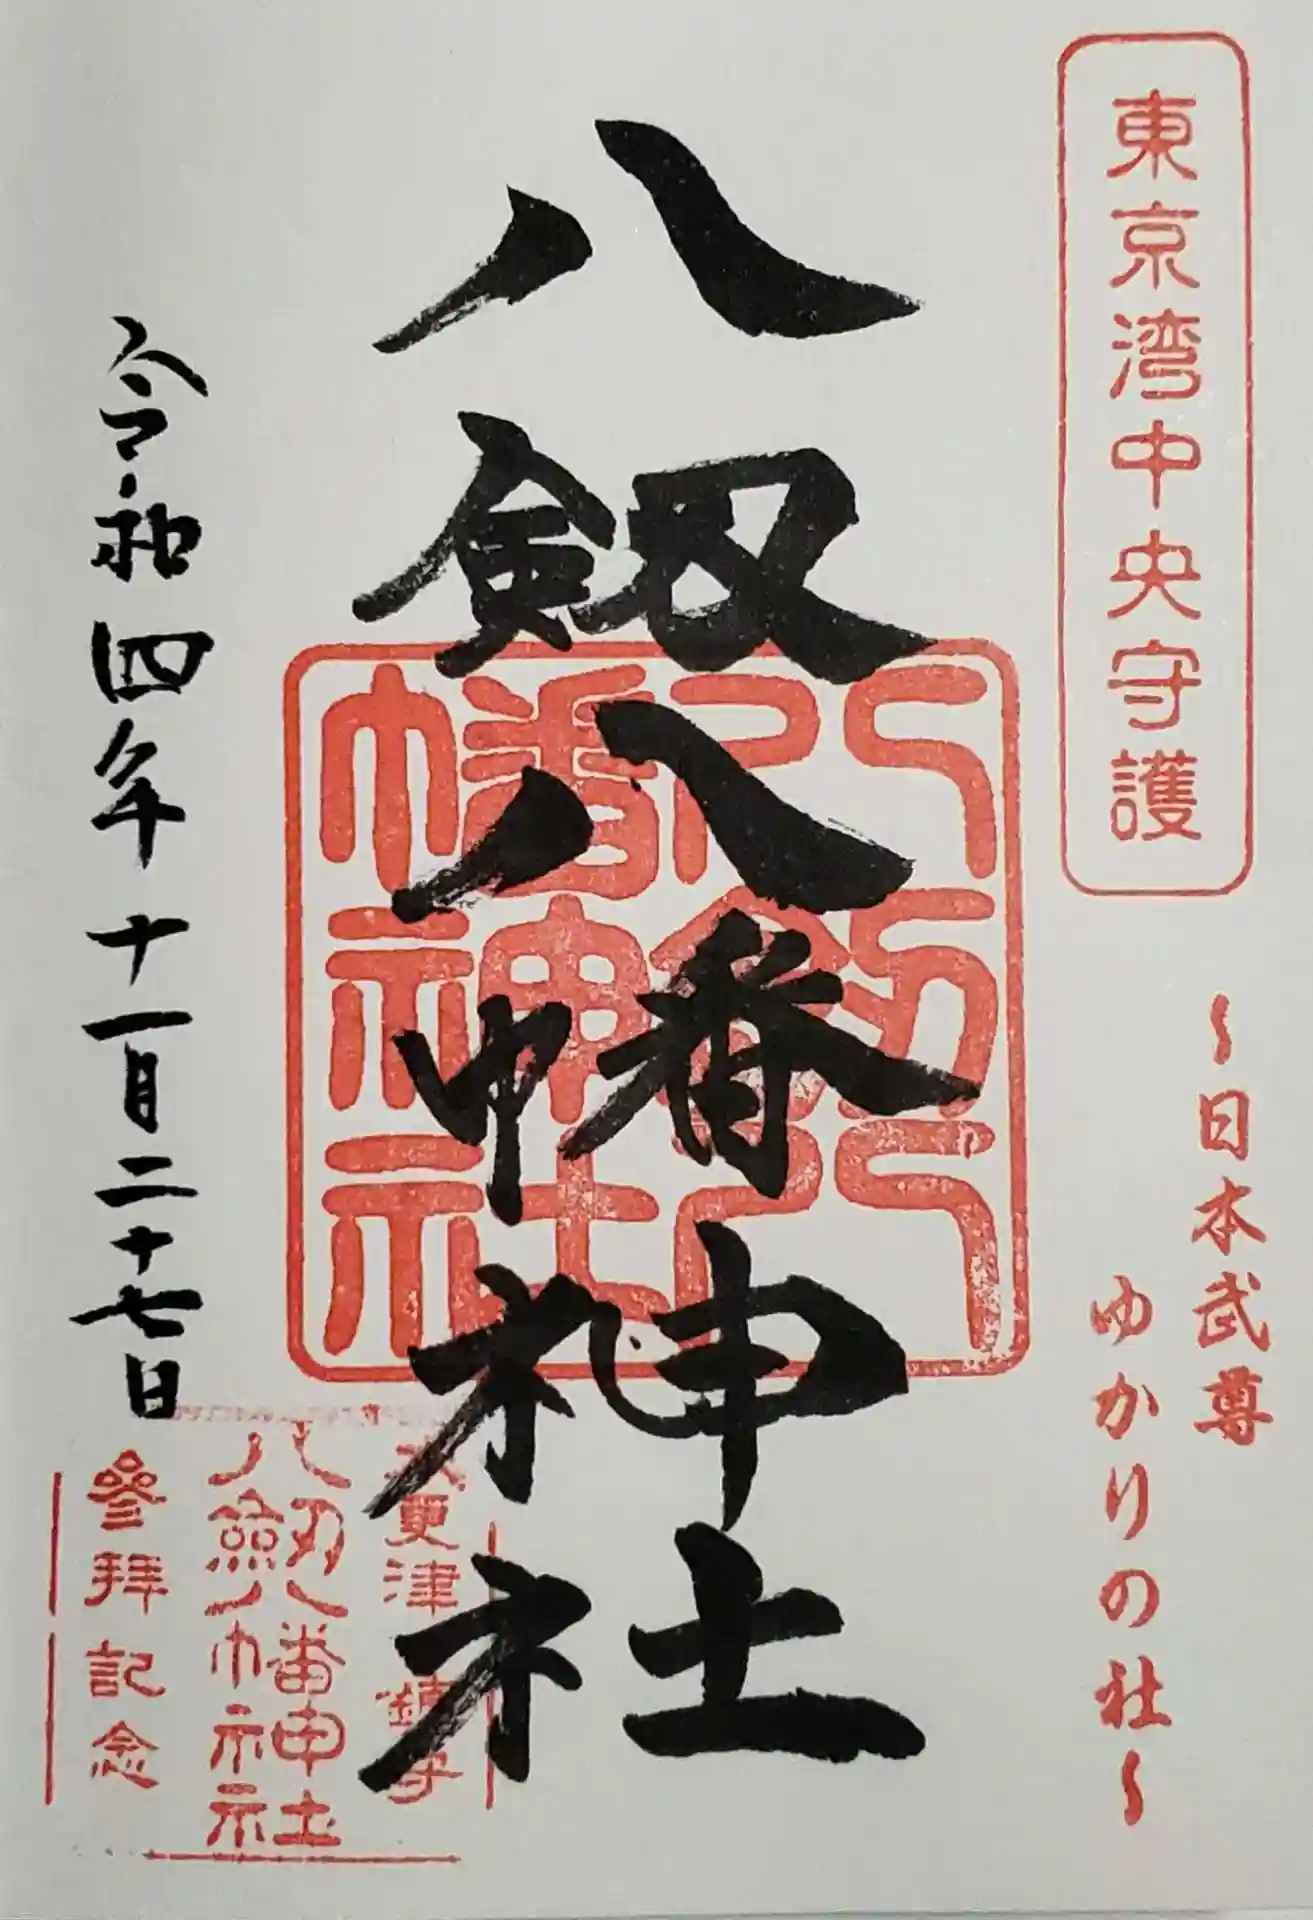 東京湾中央守護
~日本武尊
ゆかりの社~
八剱八幡神社
八剱八幡神社
木更津 鎮守
八劔八幡神社
參拜記念
令和四年十一月二十七日